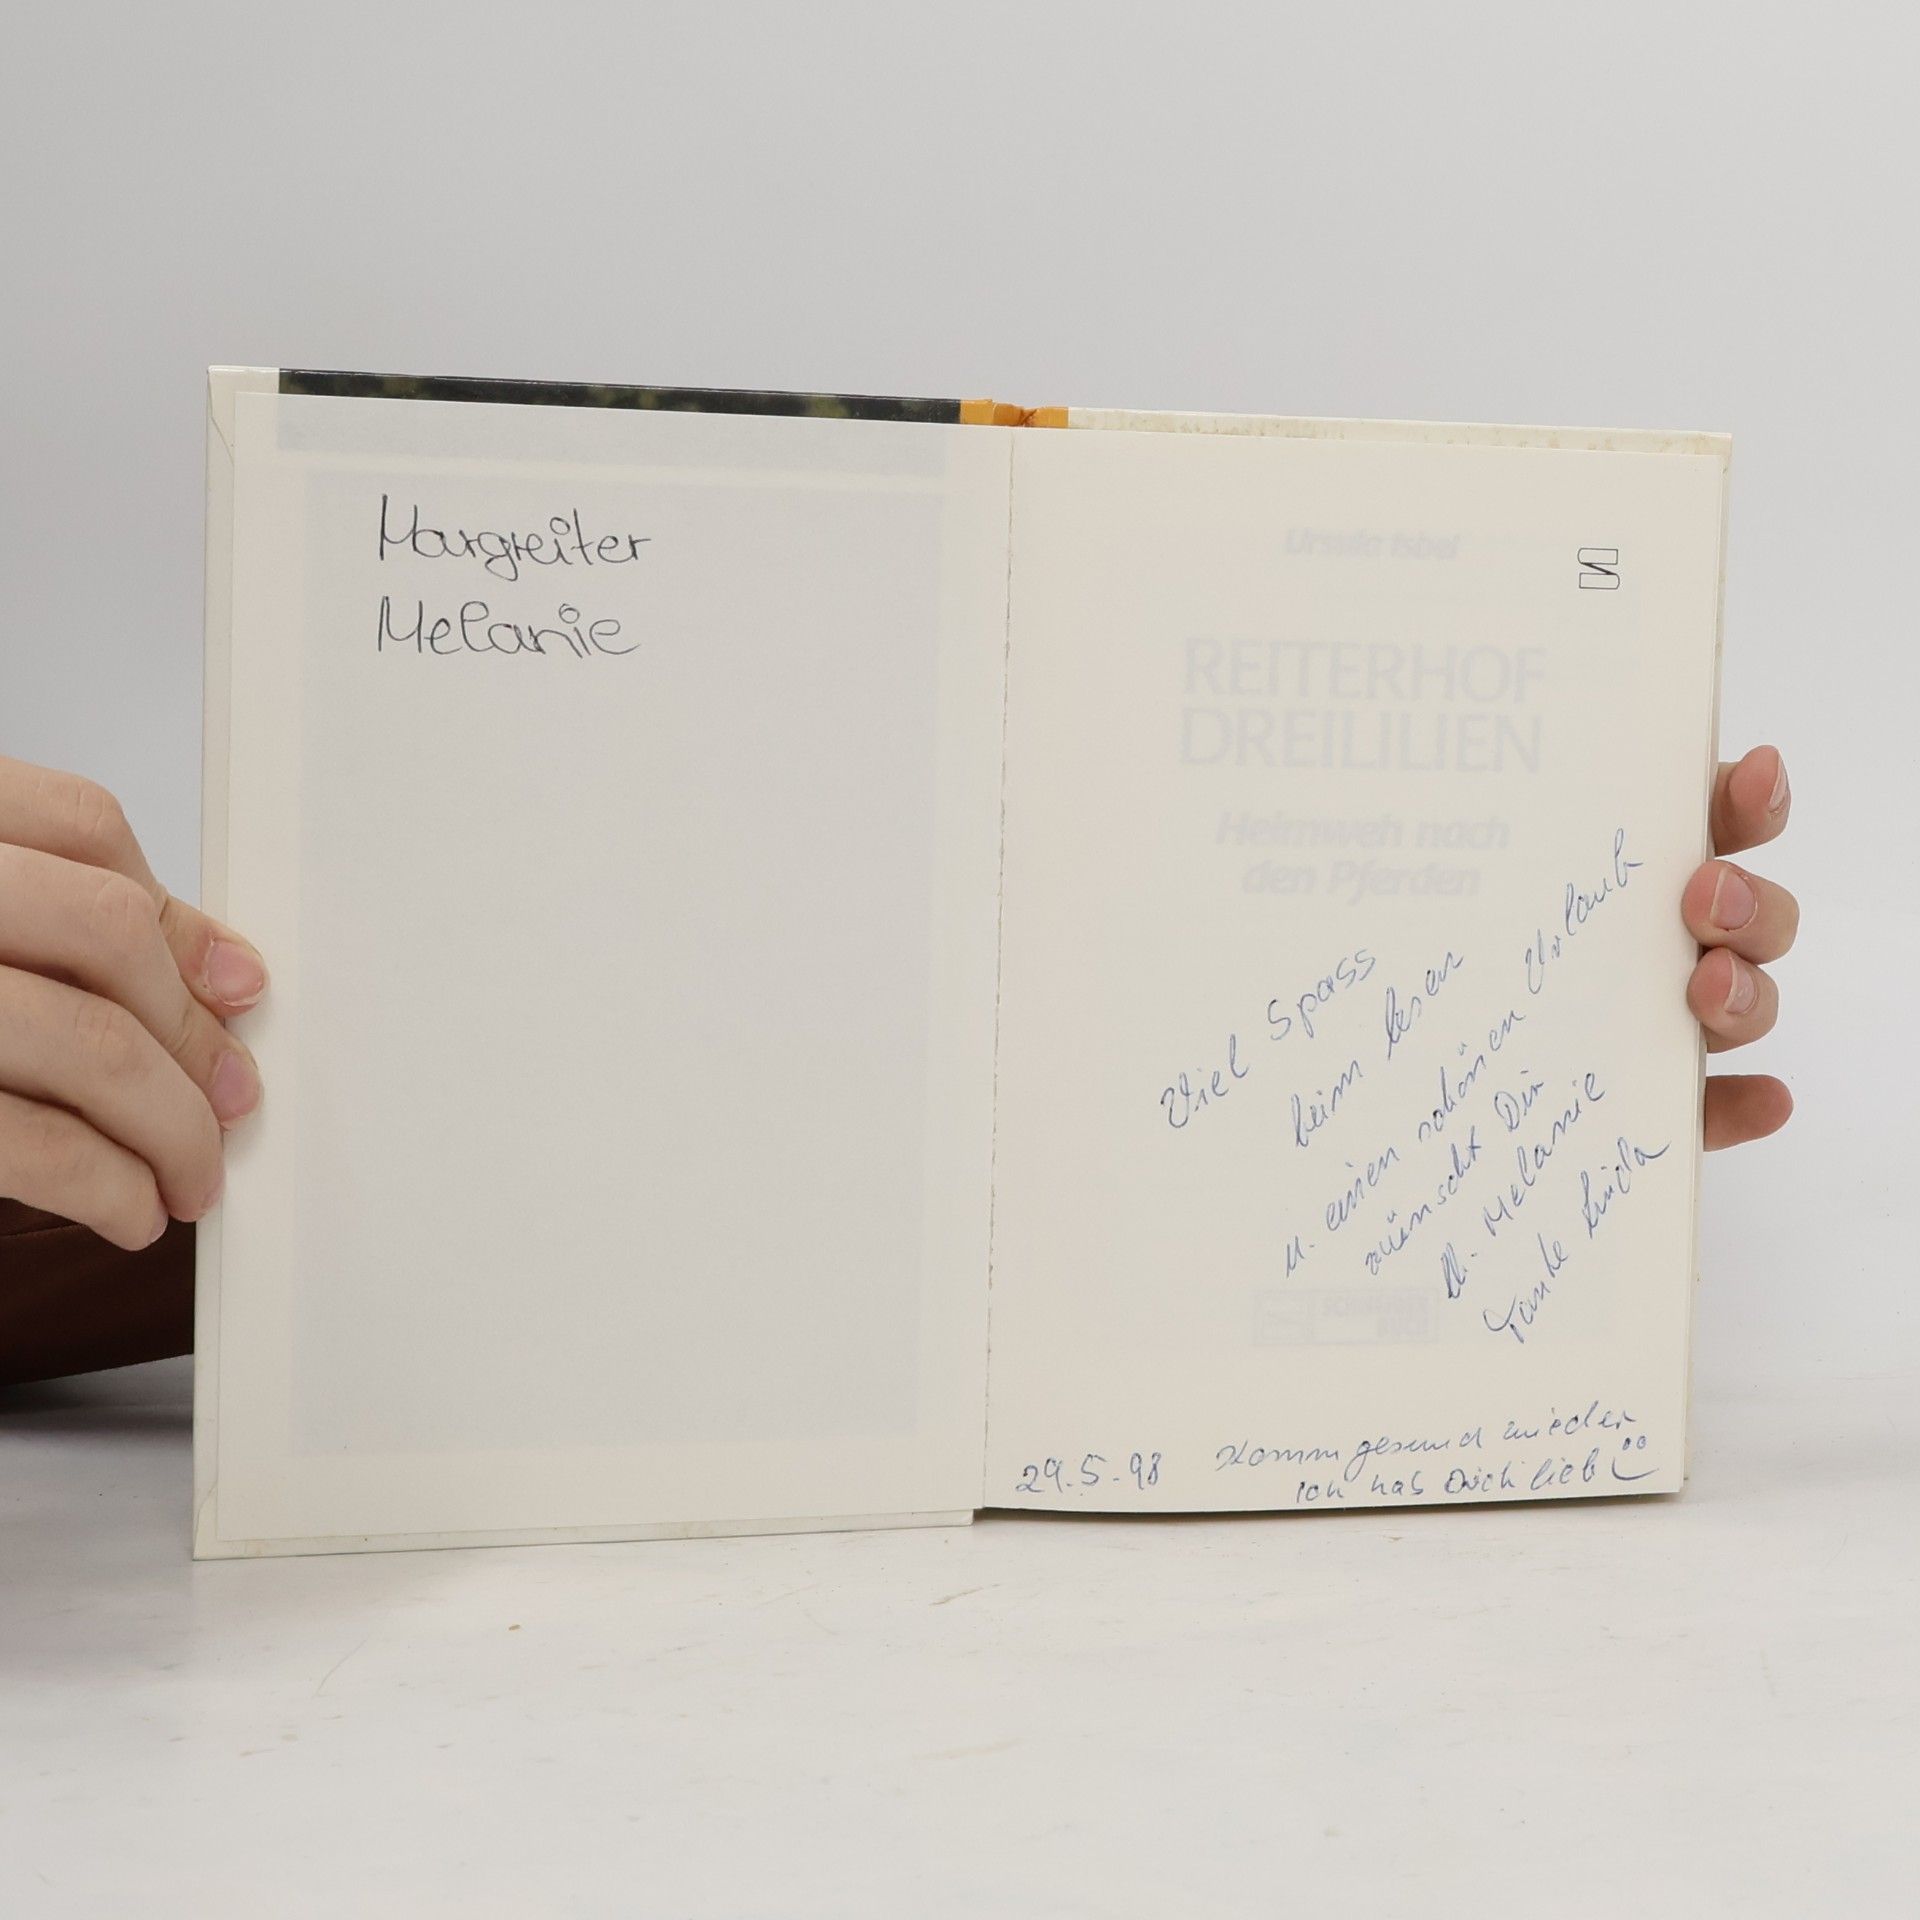 Margreiter
Melanie
Ursula Isbel
REITERHOF
DREILILIEN
Heimweh nach
den Pferden
Viel Spass
beim lesen
u. einen schönen Urlaub
wünscht Dir
Melanie
Tante Linda
SCHNEIDER
BUCH
29.5.98
Komm gesund wieder
ich hab Dich lieb